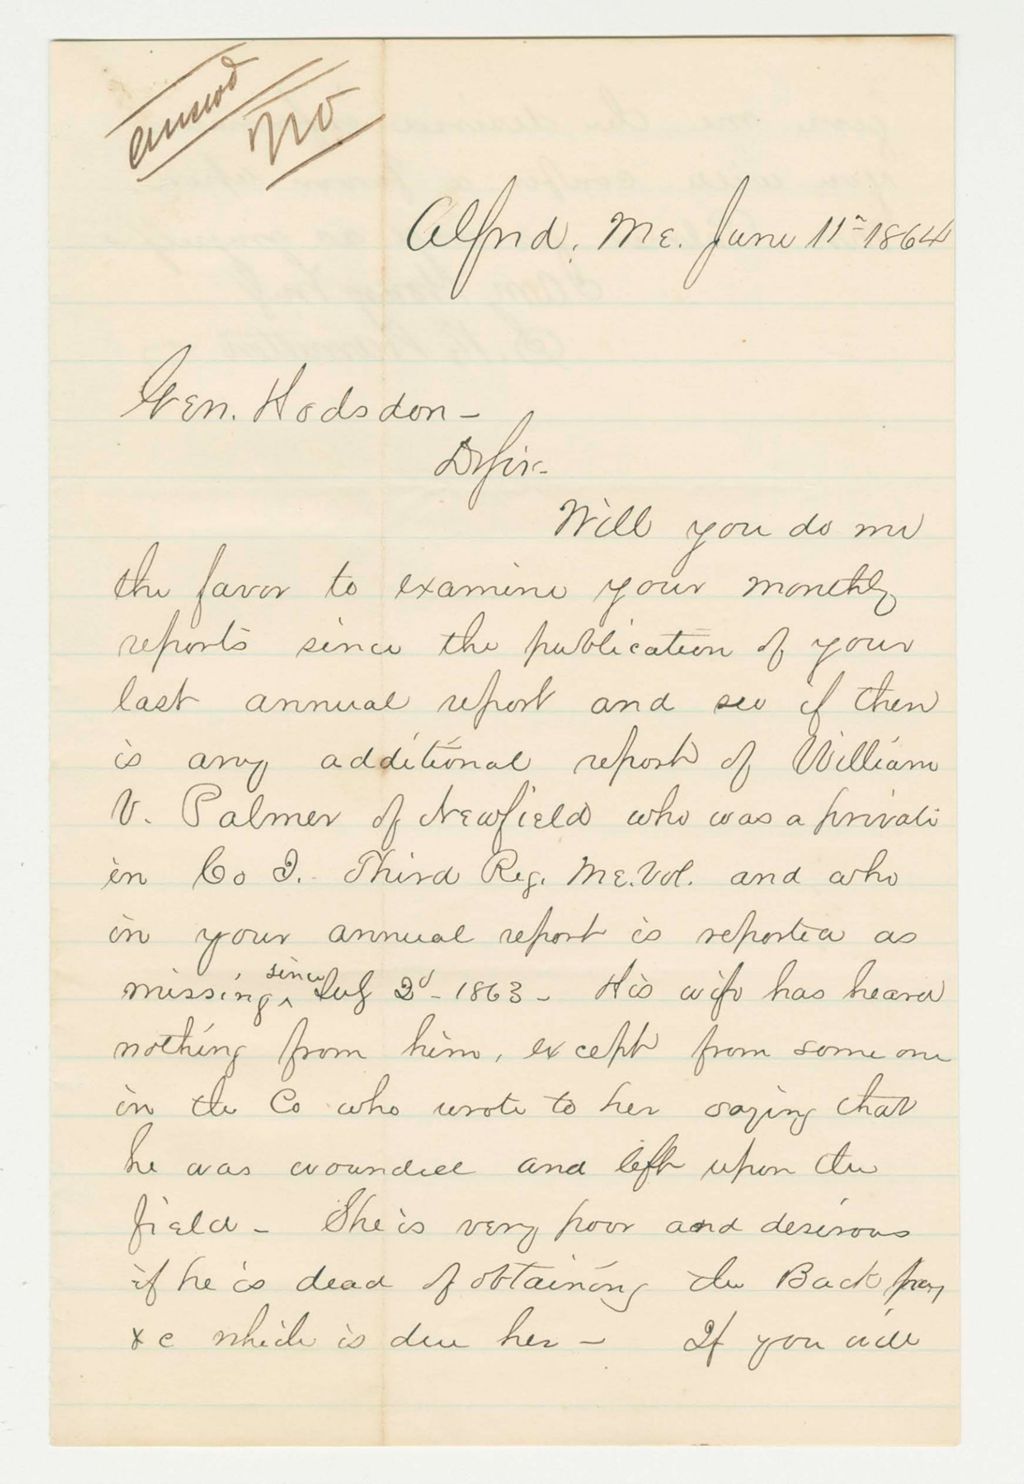 answd
No
Alfred, Me. June 11th 1864
Gen. Hodsdon -
Dr Sir -
Will you do me
the favor to examine your monthly
reports since the publication of your
last annual report and see if there
is any additional report of William
V. Palmer of Newfield who was a private
in Co I. Third Reg. Me. Vol. and who
in your annual report is reported as
missing since July 2d - 1863 - His wife has heard
nothing from him, except from some one
in the Co who wrote to her saying that
he was wounded and left upon the
field - She is very poor and desirous
if he is dead of obtaining the Back pay
&c which is due her - If you will